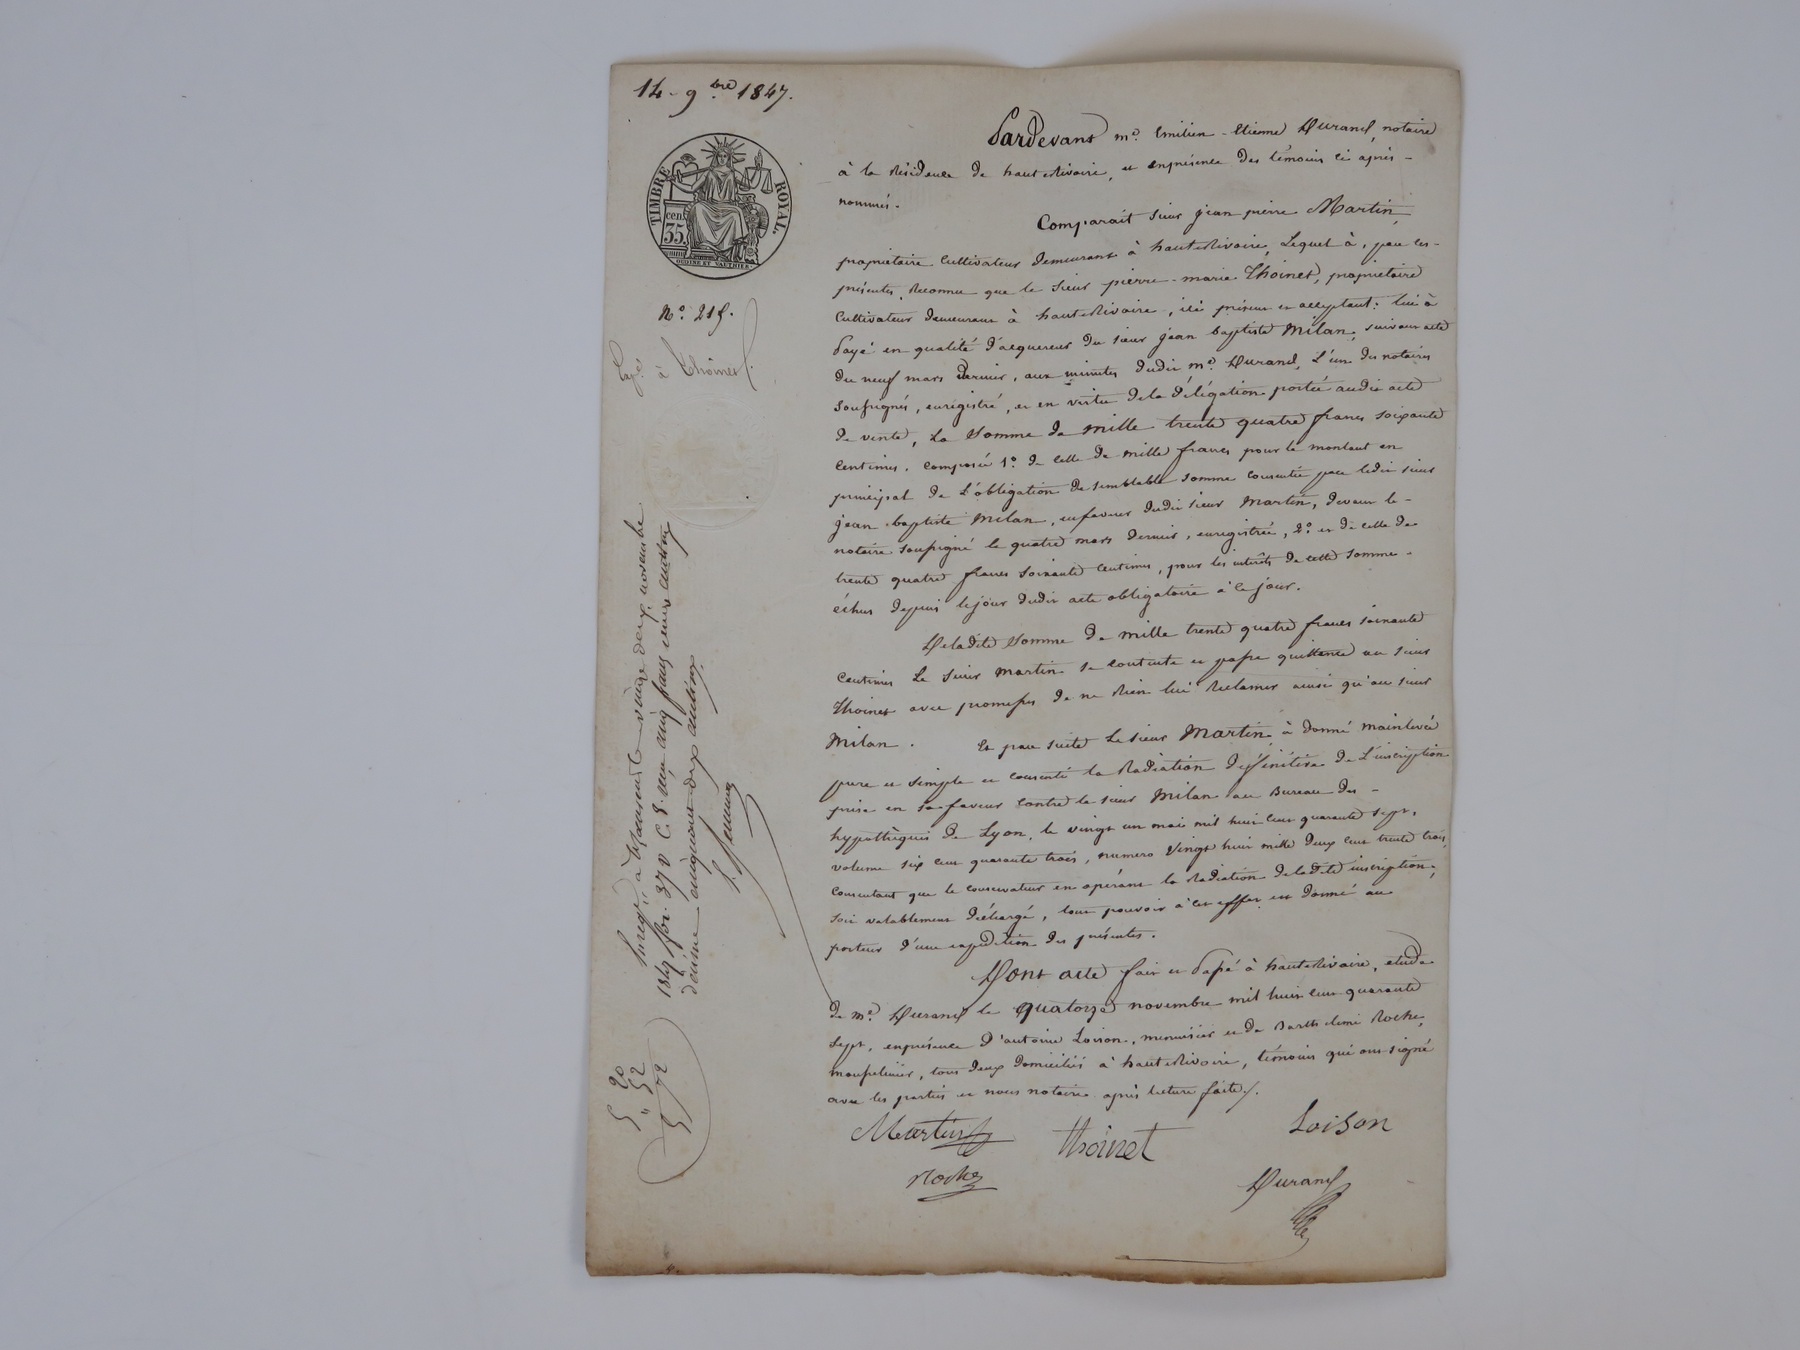 14 9bre 1847.
TIMBRE ROYAL.
cen. 35.
OUDINÉ ET VAUTHIER
No. 215.
à Thoinet
Pardevant me. Emilien-Etienne Durand, notaire
à la Résidence de hauterivoire, et enprésence des témoins ci après-
nommés.
Comparait sieur jean pierre Martin,
propriétaire cultivateur demeurant à hauterivoire, Lequel à, par ces-
présentes, Reconnu que le sieur pierre-marie Thoinet, propriétaire
cultivateur demeurant à hauterivoire, ici présent et acceptant: lui à
payé en qualité d'acquereur du sieur jean baptiste Milan, suivant acte
du neuf mars dernier, aux minutes dudit me. Durand, l'un des notaires
soussignés, enrégistré, et en vertu dela délégation portée audit acte
de vente, La somme de mille trente quatre francs soixante
centimes, composée 1o. de celle de mille francs pour le montant en
principal de l'obligation de semblable somme consentie par ledit sieur
jean baptiste milan, enfaveur dudit sieur Martin, devant le-
notaire soussigné le quatre mars dernier, enregistrée, 2o. et de celle de
trente quatre francs soixante centimes, pour les intérêts de cette somme-
échus depuis lejour dudit acte obligatoire à ce jour.
Deladite somme de mille trente quatre francs soixante
centimes Le sieur martin se contente et passe quittance au sieur
Thoinet avec promesse de ne Rien lui Réclamer ainsi qu'au sieur
Milan. Et par suite Le sieur Martin à donné mainlevée
pure et simple et consenti la Radiation déffinitive de l'inscription
prise en sa faveur contre le sieur Milan au Bureau des-
hypothèques de Lyon, le vingt un mai mil huit cent quarante sept,
volume six cent quarante trois, numero Vingt huit mille deux cent trente trois,
consentant que le conservateur en opérant la Radiation deladite inscription,
soit valablement déchargé, tout pouvoir à cet effet est donné au
porteur d'une expédition des présentes.
Dont acte fait et passé à hauterivoire, etude
de me. Durand le quatorze novembre mil huit cent quarante
sept, enprésence d'antoine Loison, menuisier et de Barthelemi Roche,
tous deux domiciliés à hauterivoire, témoins qui ont signé
avec les parties et nous notaire après lecture faite/.
Martin
Thoinet
Loison
Roche
Durand
Enregtré à St Laurent le vingt deux novembre
1847 fo. 37 v. C. 8. Reçu cinq francs vingt centimes
décime cinquante deux centimes.
5 20
" 52
5 72